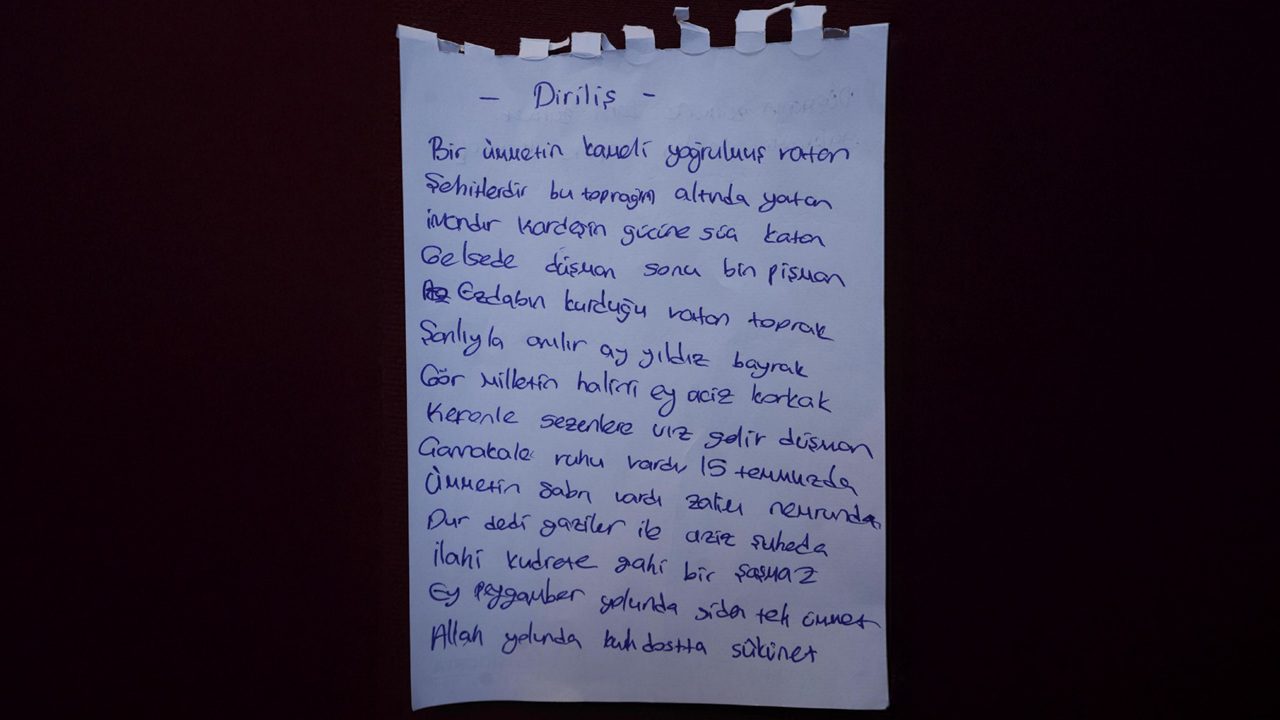 - Diriliş -
Bir ümmetin kaneli yoğrulmuş vatan
Şehitlerdir bu toprağın altında yatan
imandır kardeşin gücüne güç katan
Gelsede düşman sonu bin pişman
Ezdabın kurduğu vatan toprak
Şanlıyla anılır ay yıldız bayrak
Gör milletin halini ey aciz korkak
Kefenle gezenlere vız gelir düşman
Çanakkale ruhu vardı 15 temmuzda
Ümmetin sabrı vardı zalim nemrunda
Dur dedi gaziler ile aziz şuheda
İlahi kudrete bir şaşmaz
Ey peygamber yolunda giden tek ümmet
Allah yolunda sükünet